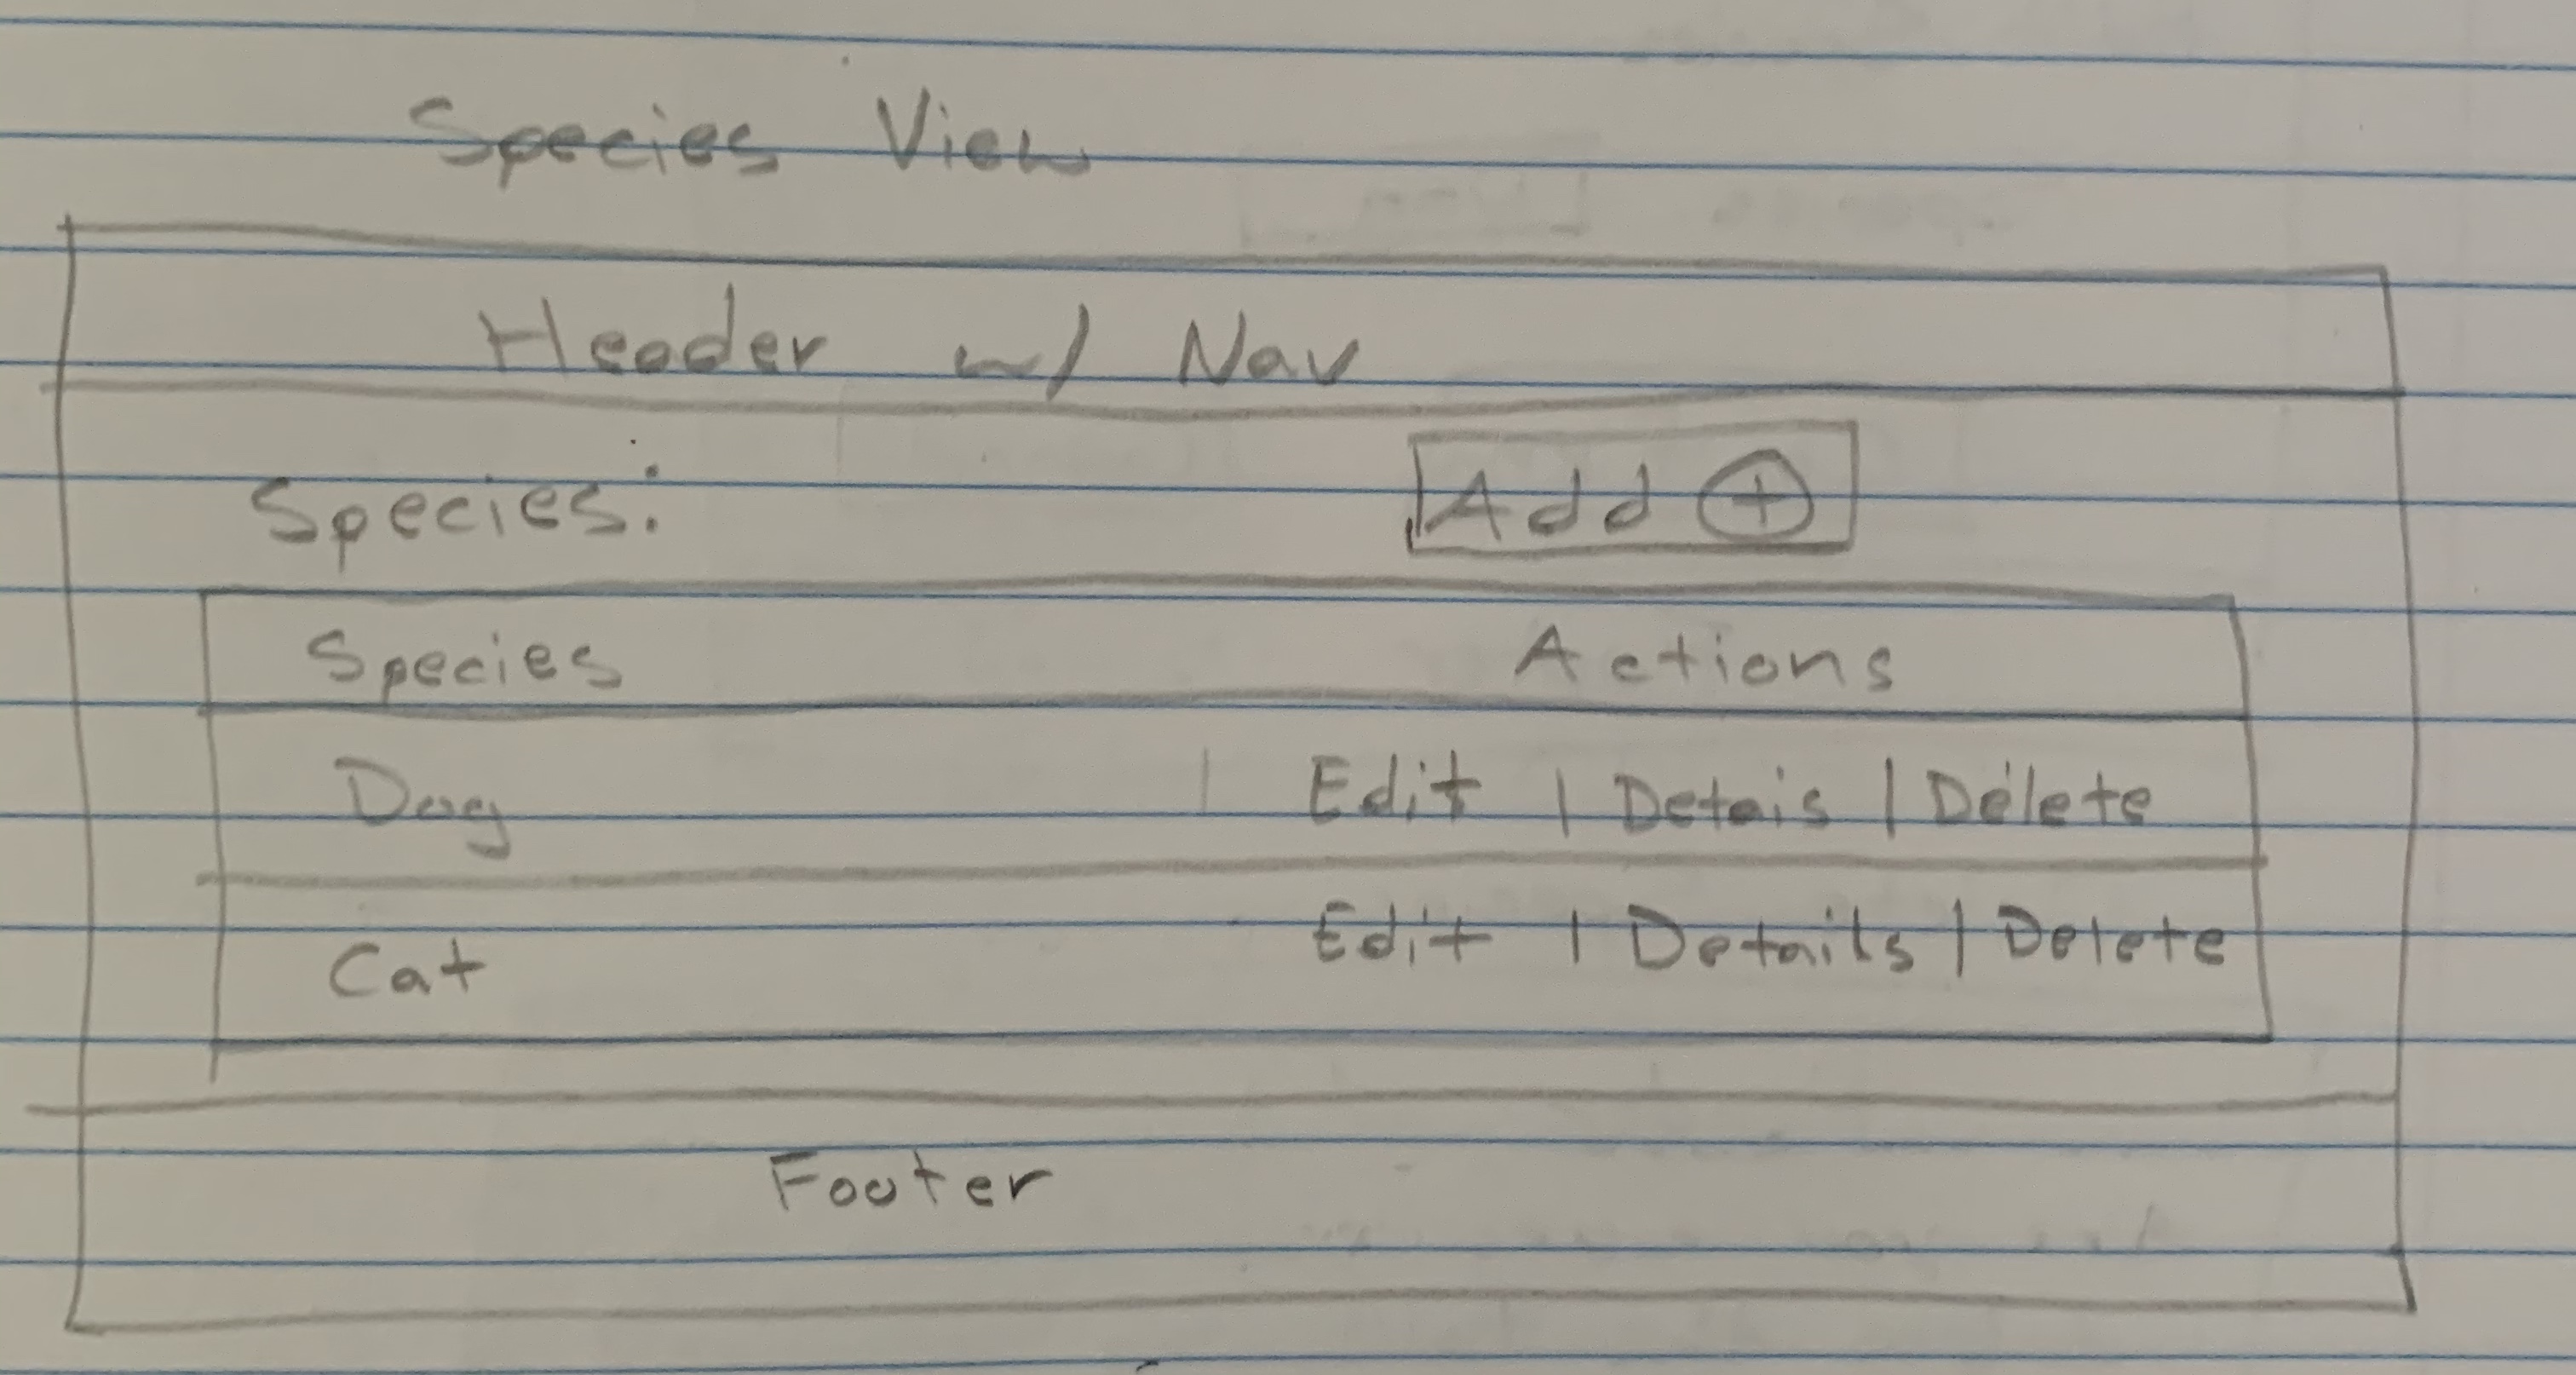 Species View
Header w/ Nav
Species: Add +
Species Actions
Dog | Edit | Detais | Delete
Cat Edit | Details | Delete
Footer